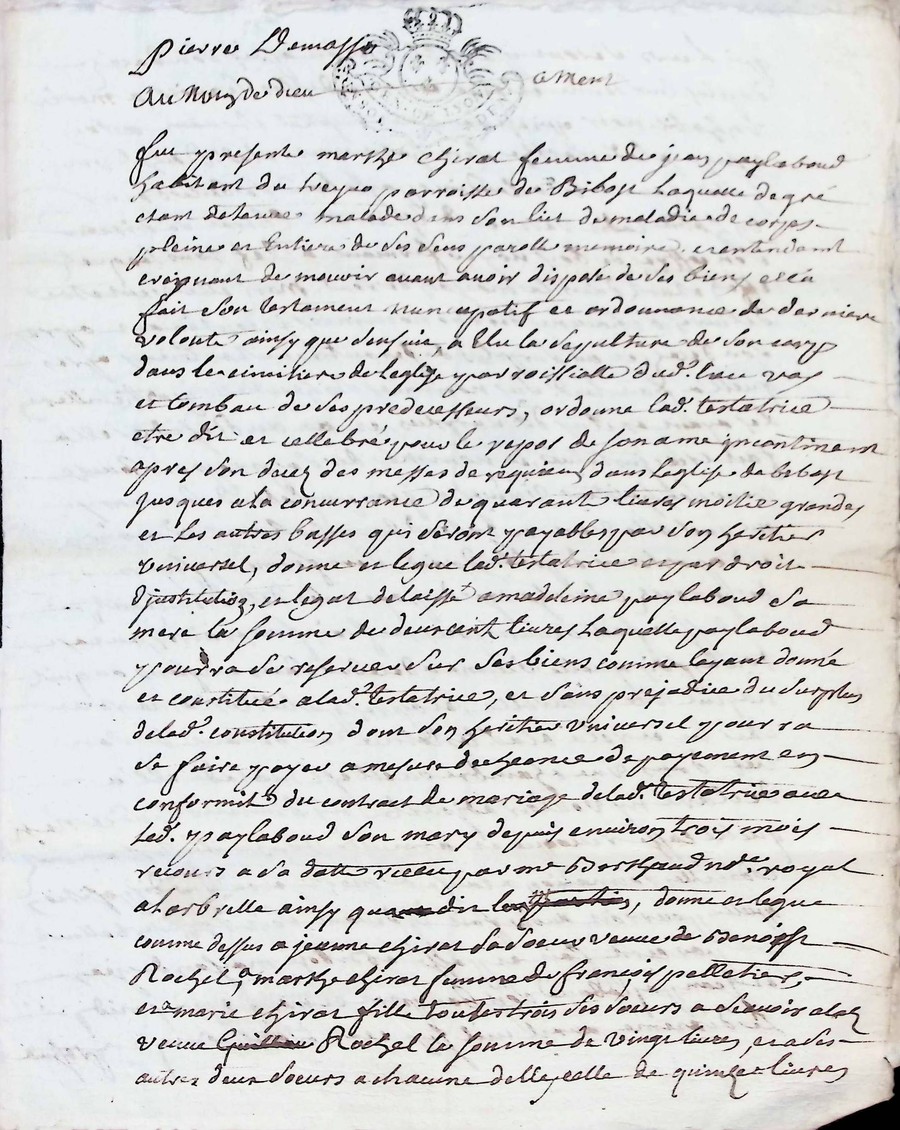 Pierre Demasso
Au Nom de dieu amen
fut presente marthe chirat femme de jean paylaboud
habitant du parroisse de Bibost laquelle de gré
etant detenue malade dans son lict de maladie de corps
pleine et Entiere de ses sens parolle memoire et entendement
creignant de mourir avant avoir disposé de ses biens elle a
fait son testament nuncupatif et ordonnance de derniere
volonté ainsy que sensuit, a Elu la sepulture de son corp
dans le cimitiere de leglise parroissialle dud. lieu vas
et tombau de ses predecesseurs, ordonne lad. testatrice
etre dit et cellebré pour le repos de son ame incontinant
apres son decez des messes de requiem dans leglise de bibost
jusques a la concurrance de quarante livres moitie grandes
et les autres basses qui seront payables par son heritier
universel, donne et legue lad. testatrice et par droit
djnstitution et legat delaisse a madeleine paylaboud sa
mere la somme de deux cent livres laquelle paylaboud
pourra se reserver sur ses biens comme layant donné
et constitué a lad. testatrice, et sans prejudice du surplus
de lad. constitution dont son heritier universel pourra
se faire payer a mesure decheance de payement en
conformité du contract de mariage de lad. testatrice avec
led. paylaboud son mary depuis environ trois mois
recours a sa datte receu par me not.re royal
a larbrelle ainsy dit, donne et legue
comme dessus a jeanne chirat sa soeur veuve de Benoist
Rochel, marthe chirat femme de françois pelletier,
et a marie chirat fille toutes trois ses soeurs a scavoir a la
veuve Rochel la somme de vingt livres, et a ses
autres deux soeurs a chacune delles celle de quinze livres